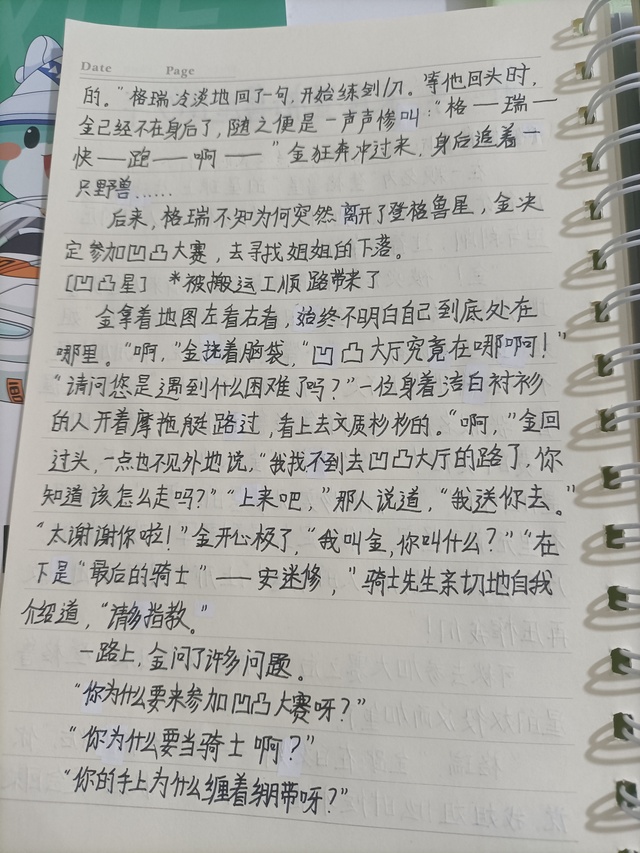 Date Page
的。”格瑞冷淡地回了一句，开始练到八刀。等他回头时，
金已经不在身后了，随之便是一声声惨叫：“格——瑞——
快——跑——啊——”金狂奔冲过来，身后追着一
只野兽……
后来，格瑞不知为何突然离开了登格鲁星，金决
定参加凹凸大赛，去寻找姐姐的下落。
[凹凸星] *被搬运工顺路带来了
金拿着地图左看右看，始终不明白自己到底处在
哪里。“啊，”金挠着脑袋，“凹凸大厅究竟在哪啊啊！”
“请问您是遇到什么困难了吗？”一位身着洁白衬衫
的人开着摩拖艇路过，看上去文质杉杉的。“啊，”金回
过头，一点也不见外地说，“我找不到去凹凸大厅的路了，你
知道该怎么走吗？”“上来吧，”那人说道，“我送你去。”
“太谢谢你啦！”金开心极了，“我叫金，你叫什么？”“在
下是“最后的骑士”——安迷修，”骑士先生亲切地自我
介绍道，“请多指教。”
一路上，金问了许多问题。
“你为什么要来参加凹凸大赛呀？”
“你为什么要当骑士啊？”
“你的手上为什么缠着绷带呀？”